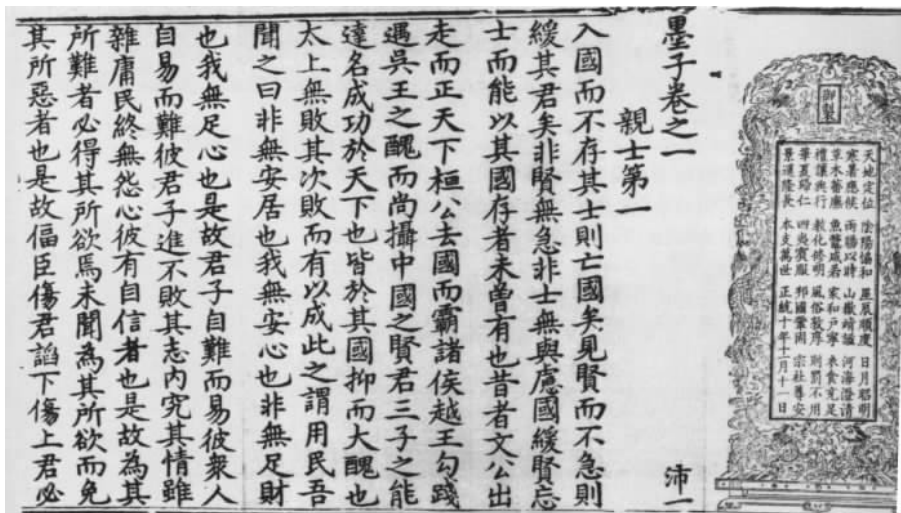 御製
天地定位 陰陽協和 星辰順度 日月昭明
寒暑應候 雨暘以時 山嶽靖謐 河海澄清
草木蕃廡 魚鱉咸若 家和戶寧 衣食充足
禮讓興行 教化修明 風俗敦厚 刑罰不用
華夏歸仁 四夷賓服 邦國鞏固 宗社尊安
景運隆長 本支萬世 正統十年十一月十一日
墨子卷之一 沛一
親士第一
入國而不存其士則亡國矣見賢而不急則
緩其君矣非賢無急非士無與慮國緩賢忘
士而能以其國存者未曾有也昔者文公出
走而正天下桓公去國而霸諸侯越王勾踐
遇吳王之醜而尚攝中國之賢君三子之能
達名成功於天下也皆於其國抑而大醜也
太上無敗其次敗而有以成此之謂用民吾
聞之曰非無安居也我無安心也非無足財
也我無足心也是故君子自難而易彼衆人
自易而難彼君子進不敗其志內究其情雖
雜庸民終無怨心彼有自信者也是故為其
所難者必得其所欲焉未聞為其所欲而免
其所惡者也是故偪臣傷君謟下傷上君必